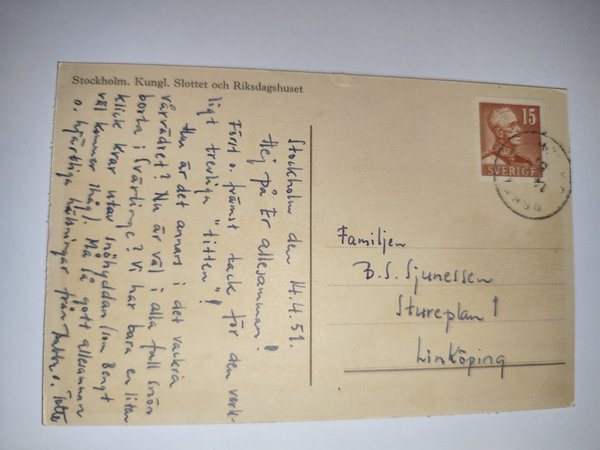 Stockholm. Kungl. Slottet och Riksdagshuset
Stockholm den 14.4.51.
Hej på Er allesamman!
Först o. främst tack för den verk-
ligt trevliga "titten"!
Hur är det annars i det vackra
vårvädret? Nu är väl i alla fall snön
borta i Svärtinge? Vi har bara en liten
klick kvar utav snöhyddan (som Bengt
väl kommer ihåg). Må så gott allesamman
o. hjärtliga hälsningar från
15
SVERIGE
Familjen
B. S. Sjunessen
Stureplan 1
Linköping